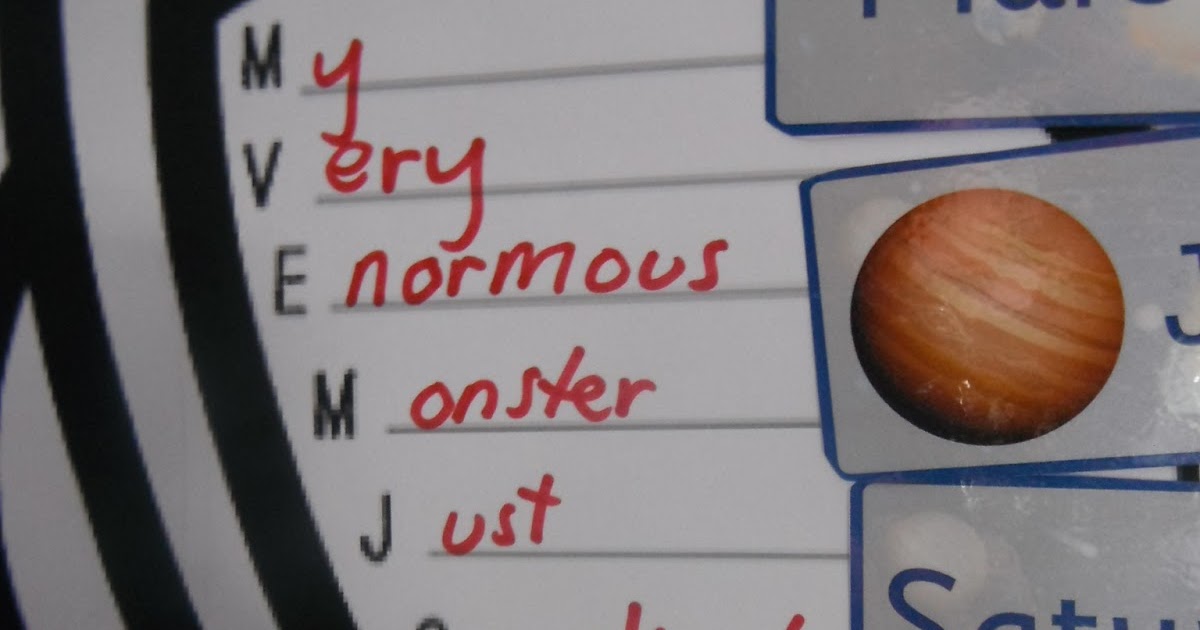 My
Very
Enormous
Monster
Just
J
Satu